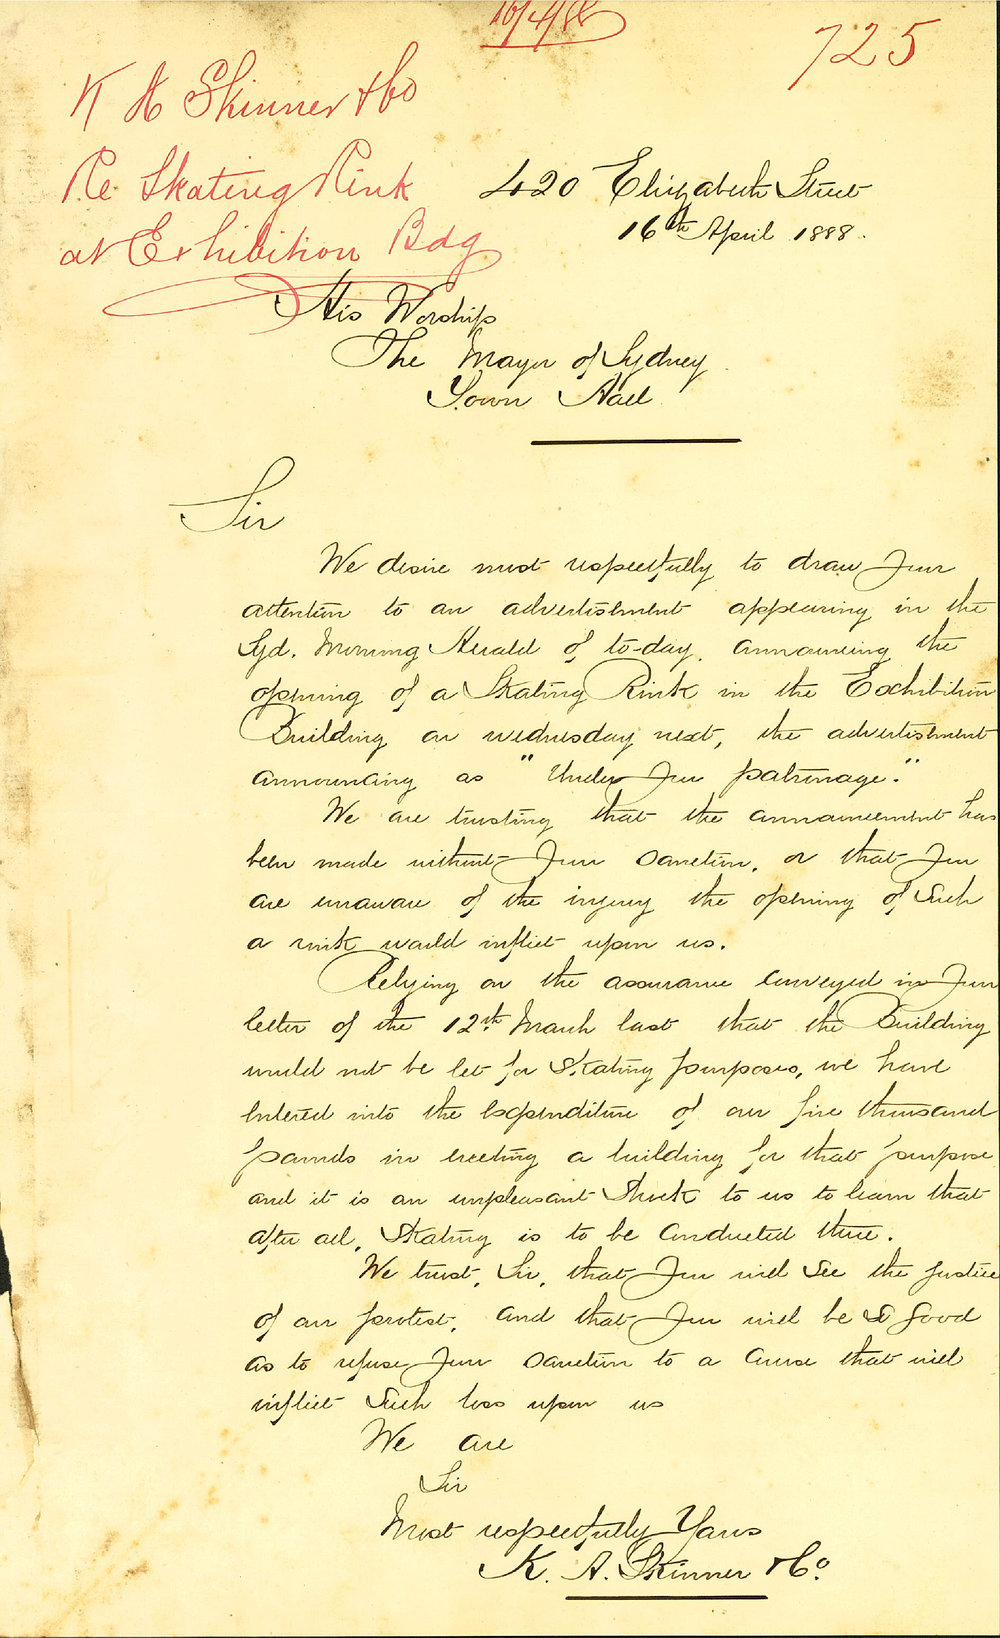 16/4/88
725
K A Skinner & Co
Re Skating Rink
at Exhibition Bdg
420 Elizabeth Street
16th April 1888.
His Worship
The Mayor of Sydney
Town Hall
Sir
We desire most respectfully to draw Your
attention to an advertisment appearing in the
Syd. Morning Herald of to-day, announcing the
opening of a Skating Rink in the Exhibition
Building on wednesday next, the advertisment
announcing as "Under Your patronage."
We are trusting that the announcement has
been made without Your Sanction, or that Your
are unaware of the injury the opening of Such
a rink would inflict upon us.
Relying on the assurance Conveyed in Your
letter of the 12th March last that the Building
would not be let for Skating purposes, we have
Entered into the Expenditure of our five thousand
pounds in erecting a building for that purpose
and it is an unpleasant Shock to us to learn that
after all, Skating is to be Conducted there.
We trust, Sir, that You will See the justice
of our protest, and that You will be So Good
as to refuse Your Sanction to a Course that will
inflict Such loss upon us
We are
Sir
Most respectfully Yours
K. A. Skinner & Co.